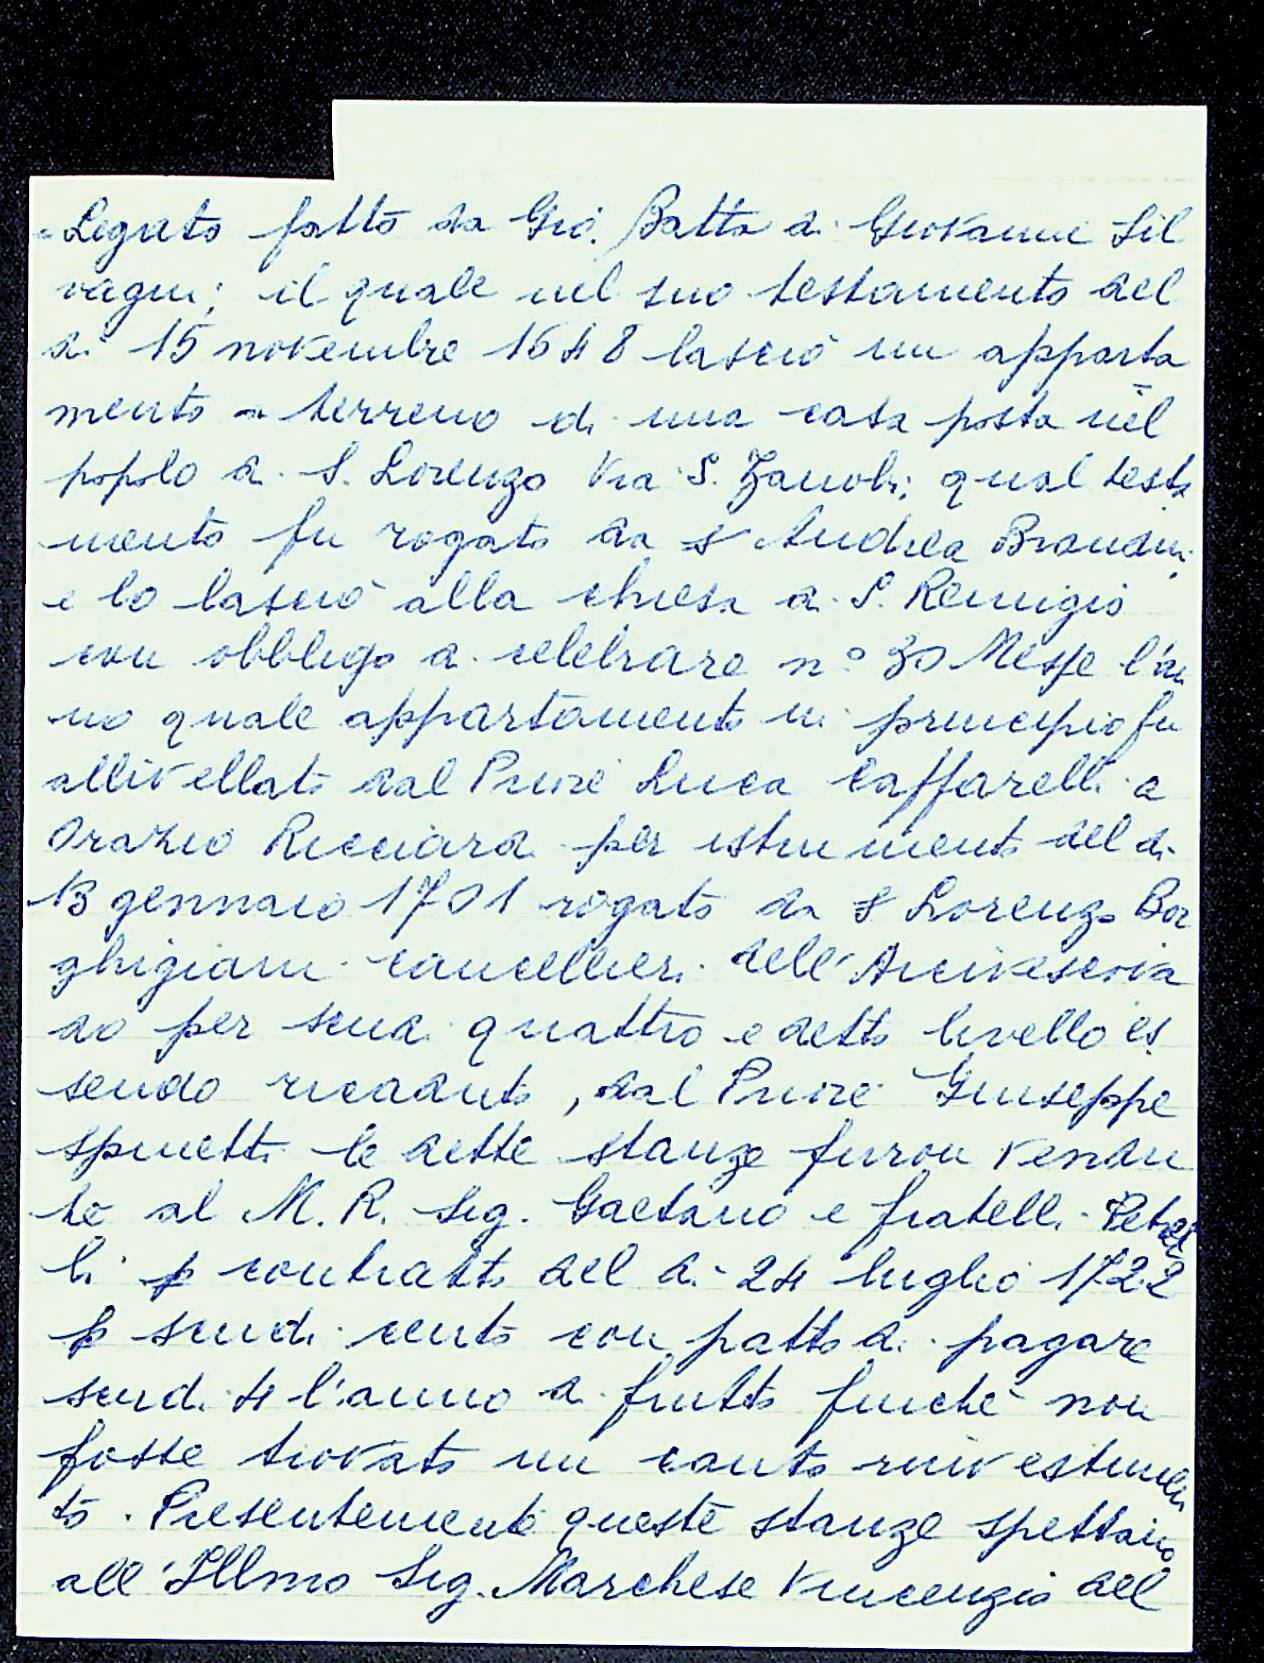 "Legato fatto da Gio. Batta di Giovanni Sil
vagni; il quale nel suo testamento del
di 15 novembre 1648 lasciò un apparta
mento a terreno di una casa posta nel
popolo di S. Lorenzo Via S. Zanobi; qual testa
mento fu rogato da s Andrea Brandini
e lo lasciò alla chiesa di S. Remigio
con obbligo di celebrare n° 30 Messe l'an
no quale appartamento in principio fu
allivellato dal Priore Luca Caffarelli a
Orazio Ricciardi per istrumento del di
13 gennaio 1701 rogato da s Lorenzo Bor
ghigiani cancellieri dell'Arcivescova
do per scudi quattro e detto livello es
sendo ricaduto, dal Priore Giuseppe
Spinetti le dette stanze furon vendu
te al M. R. Sig. Gaetano e fratelli Petrel
li p contratto del di 24 luglio 1722
p scudi cento con patto di pagare
scudi 4 l'anno di frutto finché non
fosse trovato un cauto rinvestimen
to. Presentemente queste stanze spettano
all'Illmo Sig. Marchese Vincenzio del